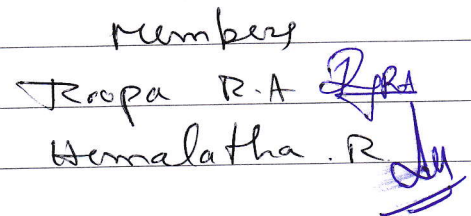 Members
Roopa R.A
Hemalatha . R